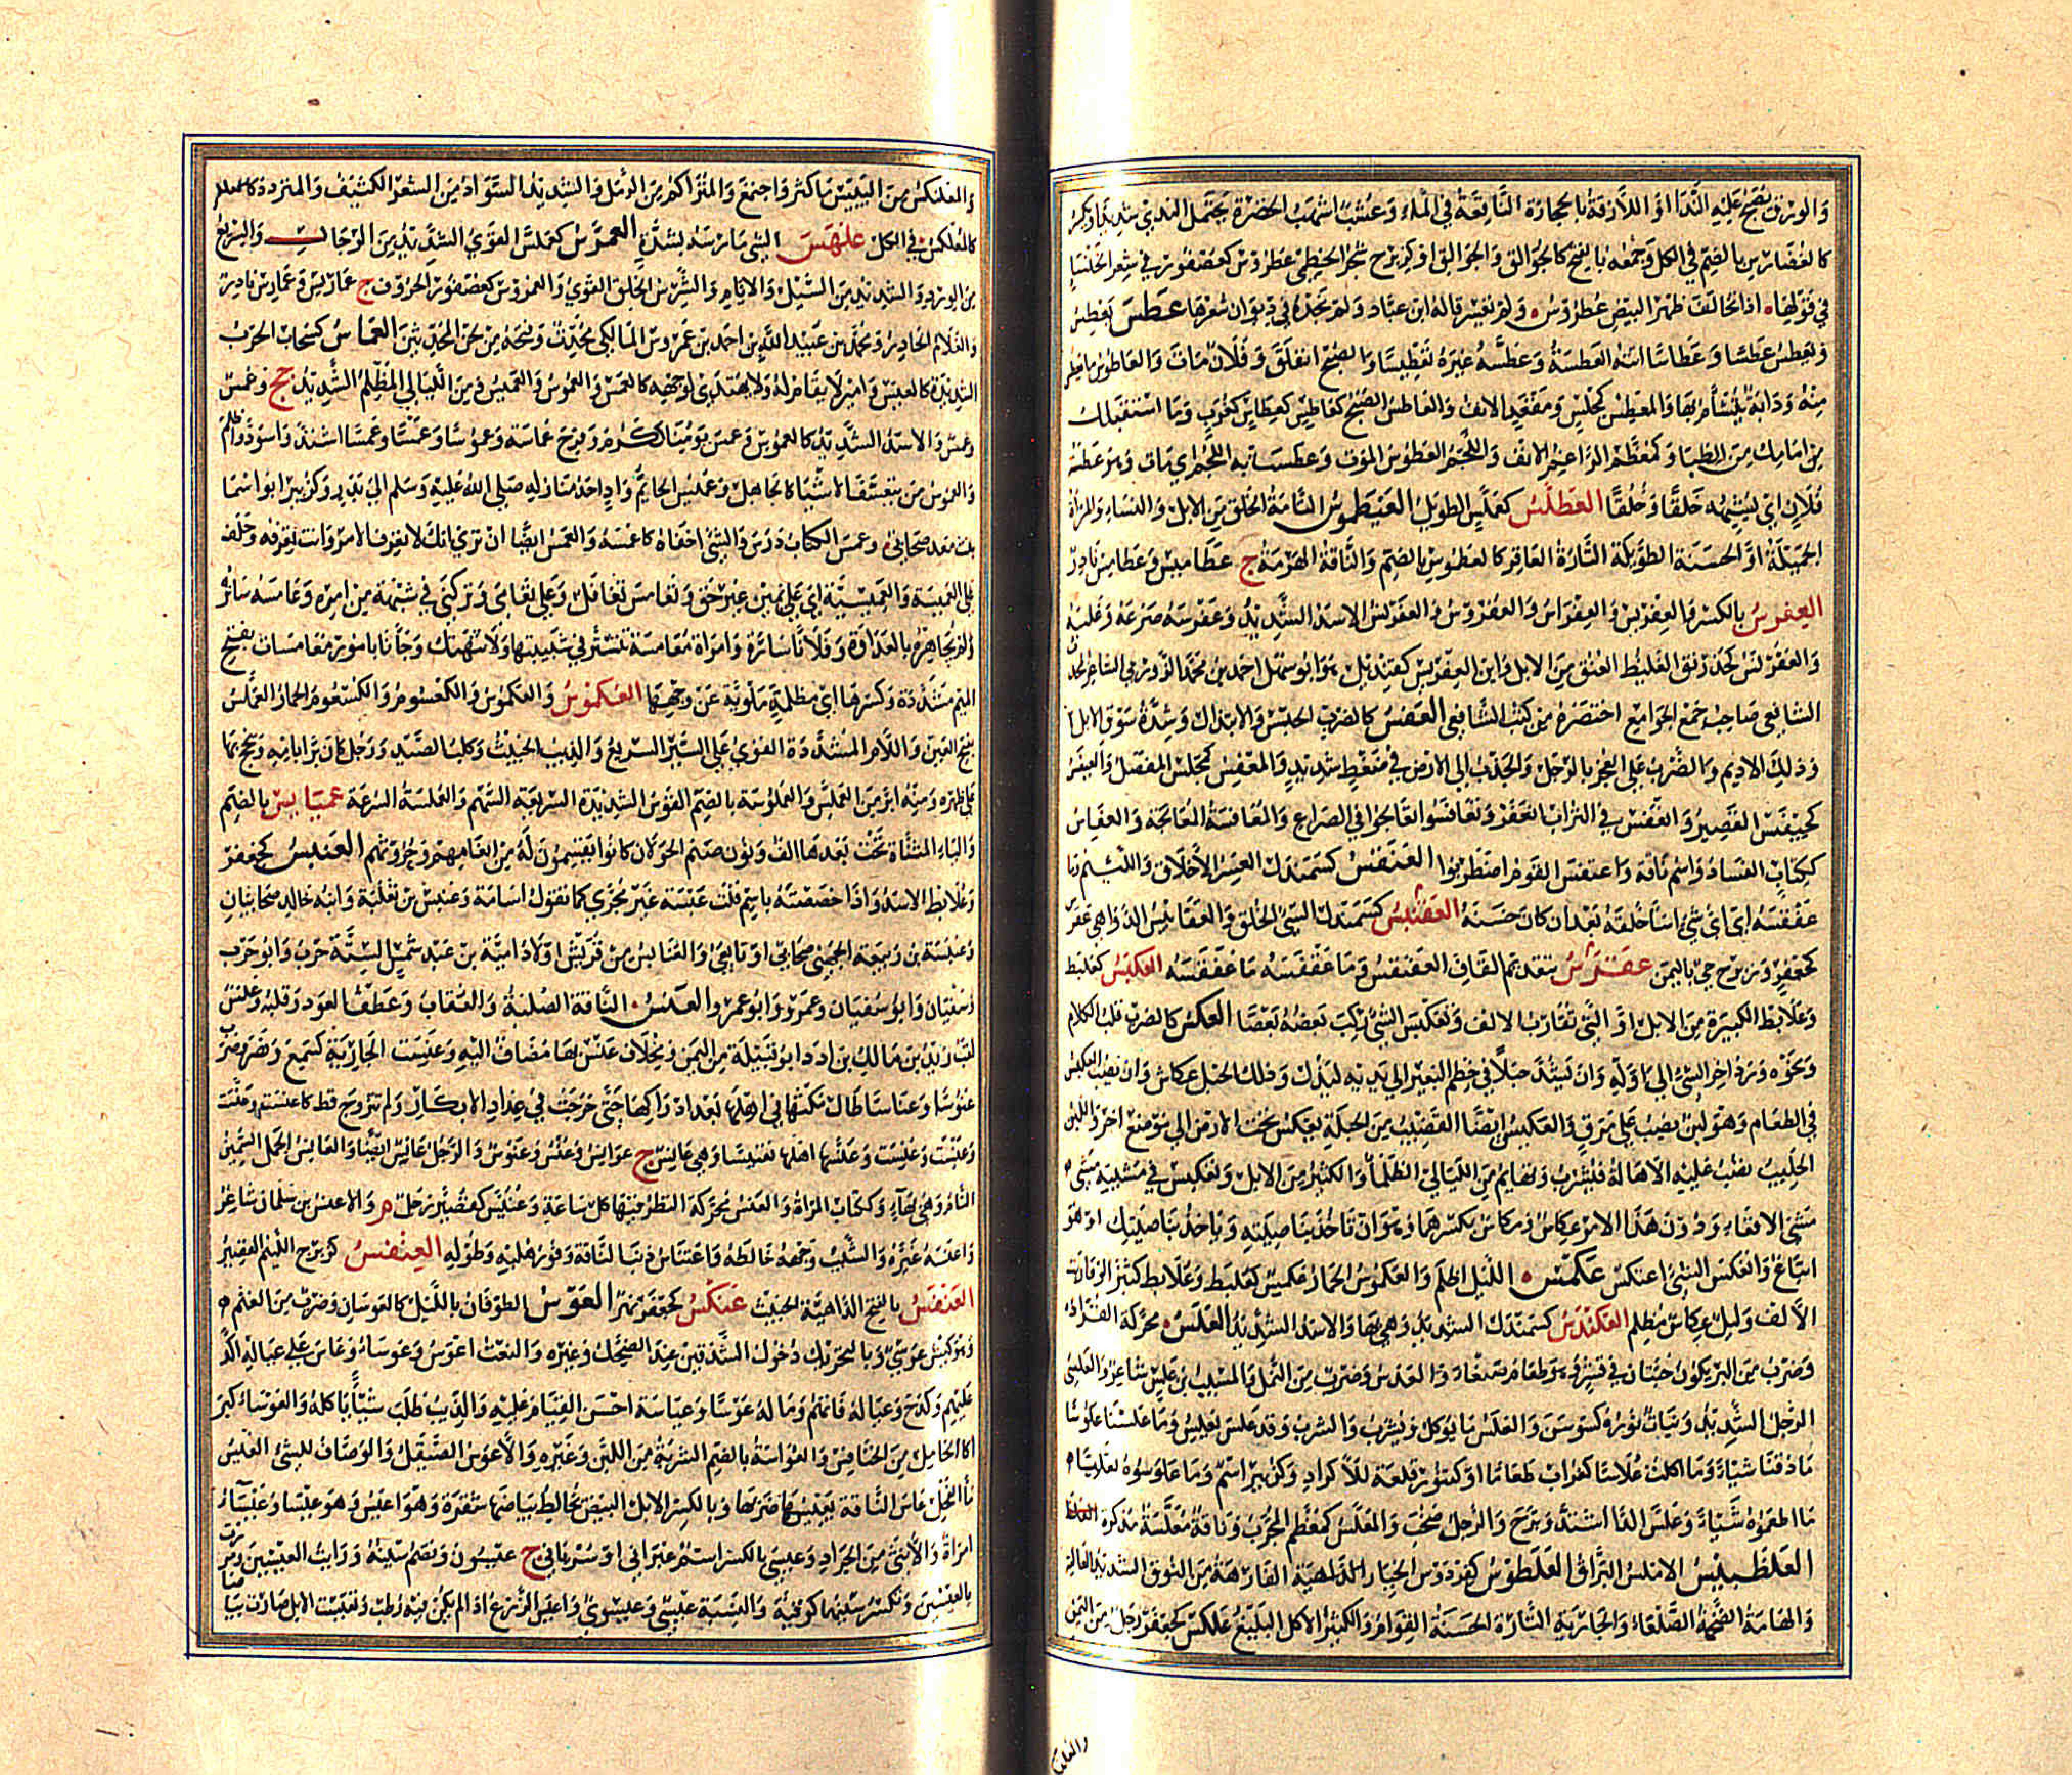 والورق يصبح عليه الندا او اللازقة بالحجارة الناقعة في الماء وعشب اشهب الخضرة يحتمل الندي شديدا
كالغضارس بالضم في الكل وجمعه بالفتح كالجوالق والجوالق او كزبرج شجر الخطمي عطروس كعصفور في شعر الخنساء
في قولها اذا تخالف ظهر البيض عطروس ولم نفسر قاله ابن عباد ولم نجده في ديوان شعرها عطس يعطس
ويعطس عطسا وعطاسا اتته العطسة وعطسه غيره تعطيسا والصبح انفلق وفلان مات والعاطوس ما يعطس
منه ودابة يتشأم بها والمعطس كمجلس ومقعد الانف والعاطس الصبح كالعطاس كغراب وما استقبلك
من امامك من الظبا وكمعظم الراغم الانف واللجم العطوس الموت وعطست به اللجم اي مات وهو عطسة
فلان اي يشبهه خلقا وخلقا العطلس كعملس الطويل العيطموس التامة الخلق من الابل والنساء والمراة
الجميلة او الحسنة الطويلة التارة العاقر كالعطموس بالضم والناقة الهرمة ج عطاميس وعطامس نادر
العفرس بالكسر والعفريس والعفراس والعفروس والعفرنس الاسد الشديد وعفرسه صرعه وغلبه
والعفرنس كجندرق الغليظ العنق من الابل وابن العفريس كقنديل هو ابو سهل احمد بن محمد الزوزني الشاعر
الشافعي صاحب جمع الجوامع اختصره من كتب الشافعي العفس كالضرب الحبس والابتذال وشدة سوق الابل
ودلك الاديم والضرب على العجز بالرجل والجذب الى الارض في ضغط شديد والمعفس كمجلس المفصل والعيفس
كحيفس القصير وانعفس في التراب انعفر وتعافسوا تعالجوا في الصراع والمعافسة المعالجة والعفاس
ككتاب الفساد واسم ناقة واعتفس القوم اضطربوا العفنفس كسمندل العسر الاخلاق واللئيم وما
عفنفسه اي اي شي اسا خلقه بعد ان كان حسنه العقنبس كسمندل السيئ الخلق والعقابيس الدواهي عقرس
كجعفر وزبرج حي باليمن عقرس بتقديم القاف العقنفس وما عقفسه ما عفقسه العكبس كعلبط
وعلابط الكبيرة من الابل او التي تقارب الالف وتعكبس الشيء ركب بعضه بعضا العكس كالضرب قلب الكلام
ونحوه ورد اخر الشيء الى اوله وان تشد حبلا في خطم البعير الى يديه ليذل وذلك الحبل عكاس وان تصب العكيس
في الطعام وهو لبن يصب على مرق والعكيس ايضا القضيب من الحبلة يعكس تحت الارض الى موضع اخر واللبن
الحليب تصب عليه الاهالة فيشرب وبهاء من الليالي الظلماء والكثير من الابل وتعكس في مشيته مشى
مشي الافعاء ودون هذا الامر عكاس ومكاس بكسرهما وهو ان تاخذ بناصيته وياخذ بناصيتك او هو
اتباع وانعكس الشيء اعتكس عكمس الليل اظلم والعكموس الحمار عكمس كعلبط وعلابط كثير او قاربت
الالف وليل عكامس مظلم العكندس كسمندل الشديد وهي بهاء والاسد الشديد العلس محركة القراد
وضرب من البر تكون حبتان في قشر وهو طعام صنعاء والعدس وضرب من النمل والمسيب بن علس شاعر والعلسي
الرجل الشديد ونبات نوره كسوسن والعلس ما يوكل ويشرب والشرب وقد علس يعلس وما علسنا علوسا
ما ذقنا شيا وما اكلت علاسا كغراب طعاما او كتنور قلعة للاكراد وكزبير اسم وما علسوه تعليسا
ما اطعموه شيا وعلس الدا اشتد وبرح والرجل صخب والمعلس كمعظم المجرب وناقة معلسة مذكرة
العلطبيس الاملس البراق العلطوس كفردوس الخيار الفارهة من النوق الشديد
والهامة الضخمة الصلعاء والجارية التارة الحسنة القوام والكثير الاكل البليغ علكس كجعفر رجل من اليمن
والعلنكس من اليبيس ما كثر واجتمع والمتراكم من الرمل والشديد السواد من الشعر الكثيف والمتردد كالمعلنكس
كالعلكس في الكل علهس الشي مارسه بشدة العمرس كعملس القوي الشديد من الرجال والسريع
من الورود والشديد من السير والايام والشرس الخلق القوي والعمروس كعصفور الخروف ج عماريس وعمارس نادر
والغلام الحادر ومحمد بن عبيد الله بن احمد بن عمروس المالكي محدث وفتحه من لحن المحدثين العماس كسحاب الحرب
الشديدة كالعميس وامر لا يقام له ولا يهتدى لوجهه كالعمس والعموس والعميس ومن الليالي المظلم الشديد ج عمس
وعمس والاسد الشديد كالعموس وعمس يومنا ككرم وفرح عماسة وعموسا وعمسا وعمسا اشتد واسود واظلم
والعموس من يتعسف الاشيا كالجاهل وعميس الحايم واد احد منازله صلى الله عليه وسلم الى بدر وكزبير ابو اسما
بنت معد صحابي وعمس الكتاب درس والشيء اخفاه كاعمسه والعمس ايضا ان تري انك لا تعرف الامر وانت تعرفه وحلف
على العميسة والعميسية اي على يمين غير حق وتعامس تغافل وعلي تعامى وتركني في شبهة من امره وعامسه ساتره
ولم يجاهره بالعداوة وفلانا ساره وامراة معامسة تتستر في شبيبتها ولا تتهتك وجانا بامور معمسات بفتح
الميم مشددة وكسرها اي مظلمة ملوية عن وجهها العكموس والعكموس والكعسوم والكسعوم الحمار العملس
بفتح العين واللام المشددة القوي على السير السريع والذيب الخبيث وكلب الصيد ورجل كان برا بامه ويحج بها
على ظهره ومنه ابر من العملس والعملوسة بالضم القوس الشديدة السريعة السهم والعملسة السرعة عميانس بالضم
والياء المثناة تحت بعدها الف ونون صنم لخولان كانوا يقسمون له من انعامهم وحروثهم العنبس كجعفر
وعلابط الاسد واذا خصصته باسم قلت عنبسة غير مجرى كما تقول اسامة وعنبس بن ثعلبة وابنه خالد صحابيان
وعنبسة بن ربيعة الجهني صحابي او تابعي والعنابس من قريش اولاد امية بن عبد شمس الستة حرب وابو حرب
وسفيان وابو سفيان وعمرو وابو عمرو العنس الناقة الصلبة والعقاب وعطف العود وقلبه وعنس
لقب زيد بن مالك بن ادد ابو قبيلة من اليمن ومخلاف عنس بها مضاف اليه وعنست الجارية كسمع ونصر وضرب
عنوسا وعناسا طال مكثها في اهلها بعد ادراكها حتى خرجت من عداد الابكار ولم تتزوج قط كاعنست وعنست
وعنست وعنست وعنسها اهلها تعنيسا وهي عانس ج عوانس وعنس وعنس وعنوس والرجل عانس ايضا والعانس الجمل السمين
التام وهي بهاء وككتاب المراة والعنس محركة النظر فيها كل ساعة وعنيس كقصير رمل م والاعنس بن سلمان شاعر
واعنسه غيره والشيب وجهه خالطه واعنناس ذنب الناقة وفور هلبه وطوله العنفس كزبرج اللئيم القصير
العنقس بالفتح الداهية الخبيث عنكس كجعفر نهر العوس الطوفان بالليل كالعوسان وضرب من الغنم م
وهو كبش عوسي وبالتحريك دخول الشدقين عند الضحك وغيره والنعت اعوس وعوساء وعاس على عياله اكد
عليهم وكدح وعياله قاتهم وماله عوسا وعياسة احسن القيام عليه والذيب طلب شيا ياكله والعوساء كبر
اكا الحامل من الخنافس والعواسة بالضم الشربة من اللبن وغيره والاعوس الصيقل والوصاف للشيء العيس
ماء الفحل عاس الناقة يعيسها ضربها وبالكسر الابل البيض يخالط بياضها شقرة وهو اعيس وهي عيساء
امراة والانثى من الجراد وعيسى بالكسر اسم عبراني او سرياني ج عيسون وتضم سينه ورايت العيسين ومررت
بالعيسين وتكسر سينهما كوفية والنسبة عيسي وعيسوي واعيس الزرع اذا لم يكن فيه رطب وتعيست الابل صارت بياضا
والعلنكس